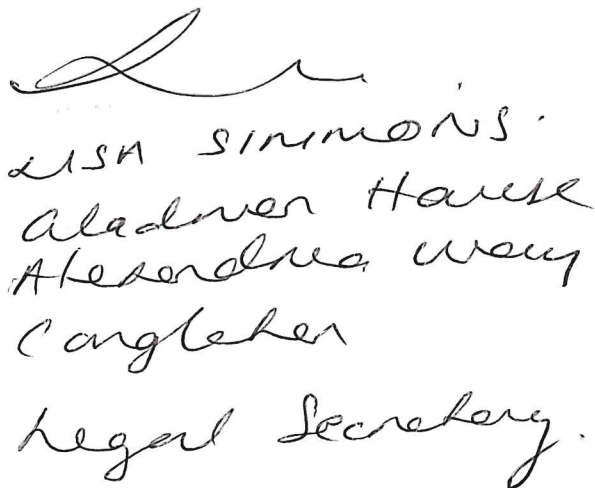 LISA SIMMONS.
House
Alexandria Way
Congleton
Legal Secretary.